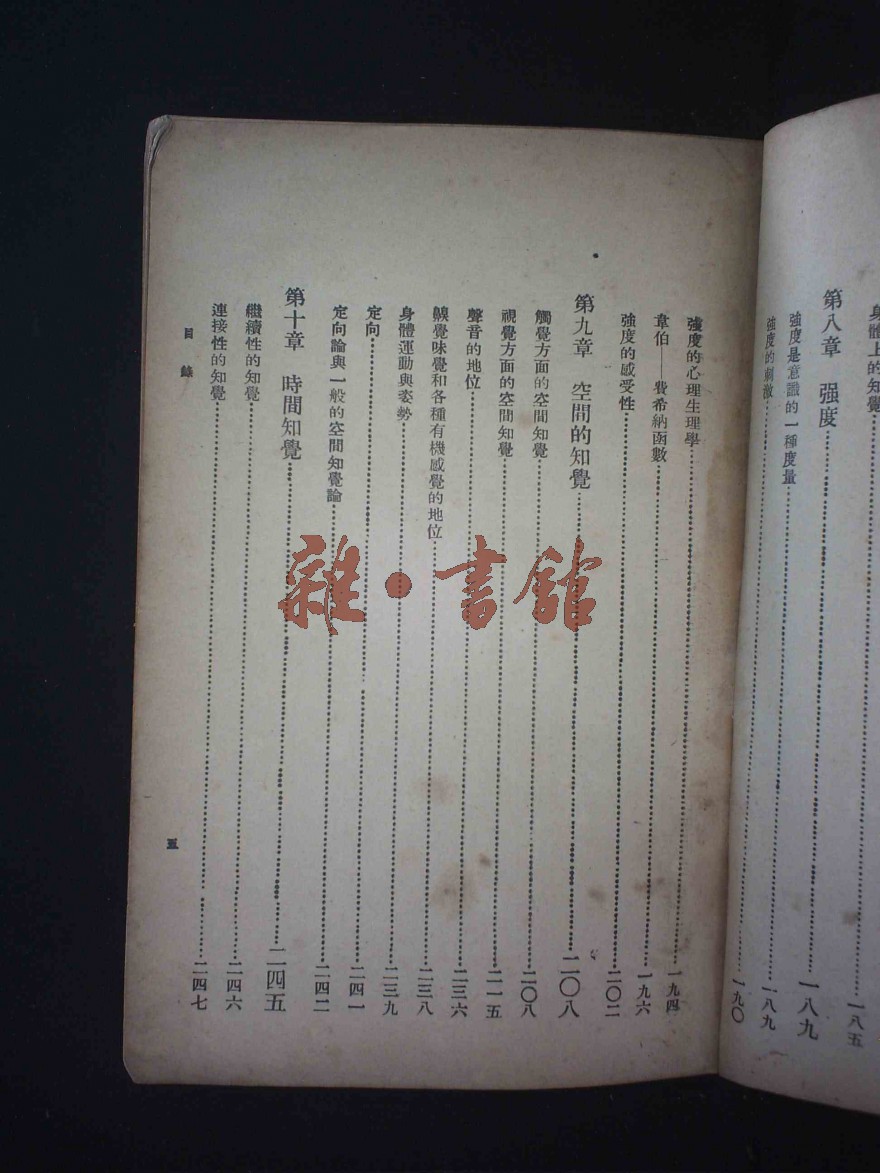 身體上的知覺……一八五
第八章 强度……一八九
強度是意識的一種度量……一八九
強度的刺激……一九〇
強度的心理生理學……一九四
韋伯——費希納函數……一九六
強度的感受性……二〇二
第九章 空間的知覺……二〇八
觸覺方面的空間知覺……二〇八
視覺方面的空間知覺……二一五
聲音的地位……二三六
齅覺味覺和各種有機感覺的地位……二三八
身體運動與姿勢……二三九
定向……二四一
定向論與一般的空間知覺論……二四二
第十章 時間知覺……二四五
繼續性的知覺……二四六
連接性的知覺……二四七
目錄
五
雜·書館